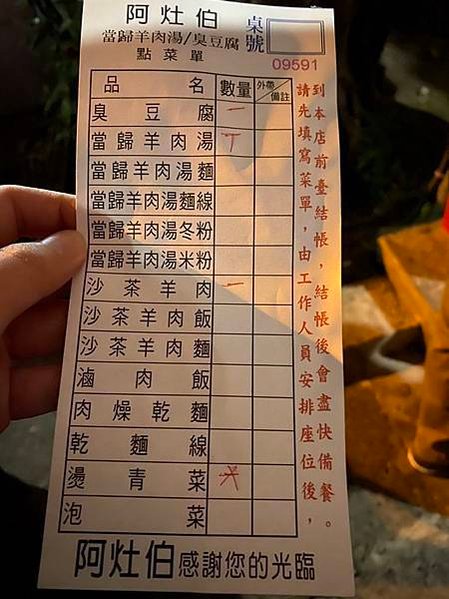 阿灶伯
當歸羊肉湯/臭豆腐
點菜單
桌號
09591
品名 數量 外帶/備註
臭豆腐 一
當歸羊肉湯 丅
當歸羊肉湯麵
當歸羊肉湯麵線
當歸羊肉湯冬粉
當歸羊肉湯米粉
沙茶羊肉 一
沙茶羊肉飯
沙茶羊肉麵
滷肉飯
肉燥乾麵
乾麵線
燙青菜
泡菜
請先填寫菜單，由工作人員安排座位後，
到本店前臺結帳，結帳後會盡快備餐。
阿灶伯感謝您的光臨